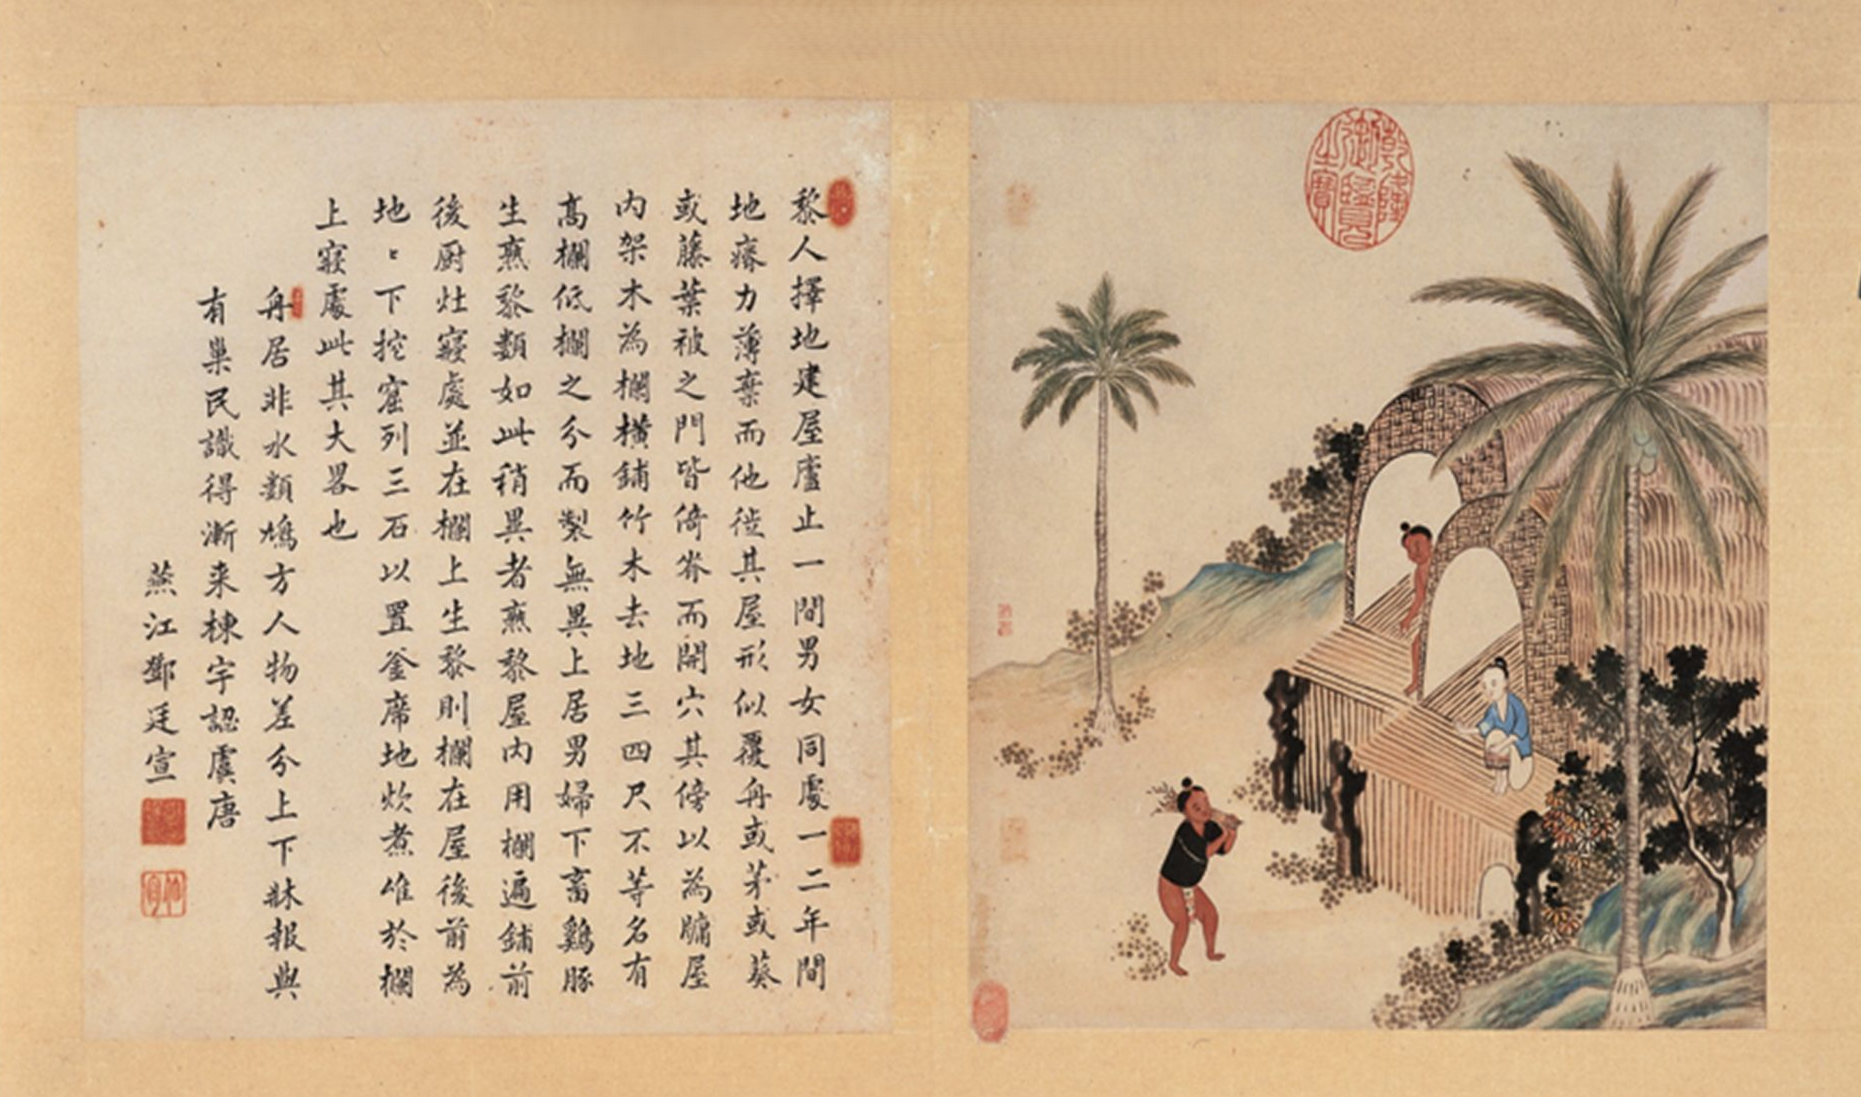 黎人擇地建屋廬止一間男女同處一二年間
地瘠力薄棄而他徙其屋形似覆舟或茅或葵
或藤葉被之門皆倚脊而開穴其傍以為牖屋
內架木為欄橫鋪竹木去地三四尺不等名有
高欄低欄之分而製無異上居男婦下畜雞豚
生熟黎類如此稍異者熟黎屋內用欄遍鋪前
後廚灶寢處並在欄上生黎則欄在屋後前為
地〻下挖窟列三石以置釜席地炊煮惟於欄
上寢處此其大畧也
舟居非水類鳩方人物差分上下牀報與
有巢民識得漸來棟宇認虞唐
燕江鄧廷宣
乾隆
御覽
之寶